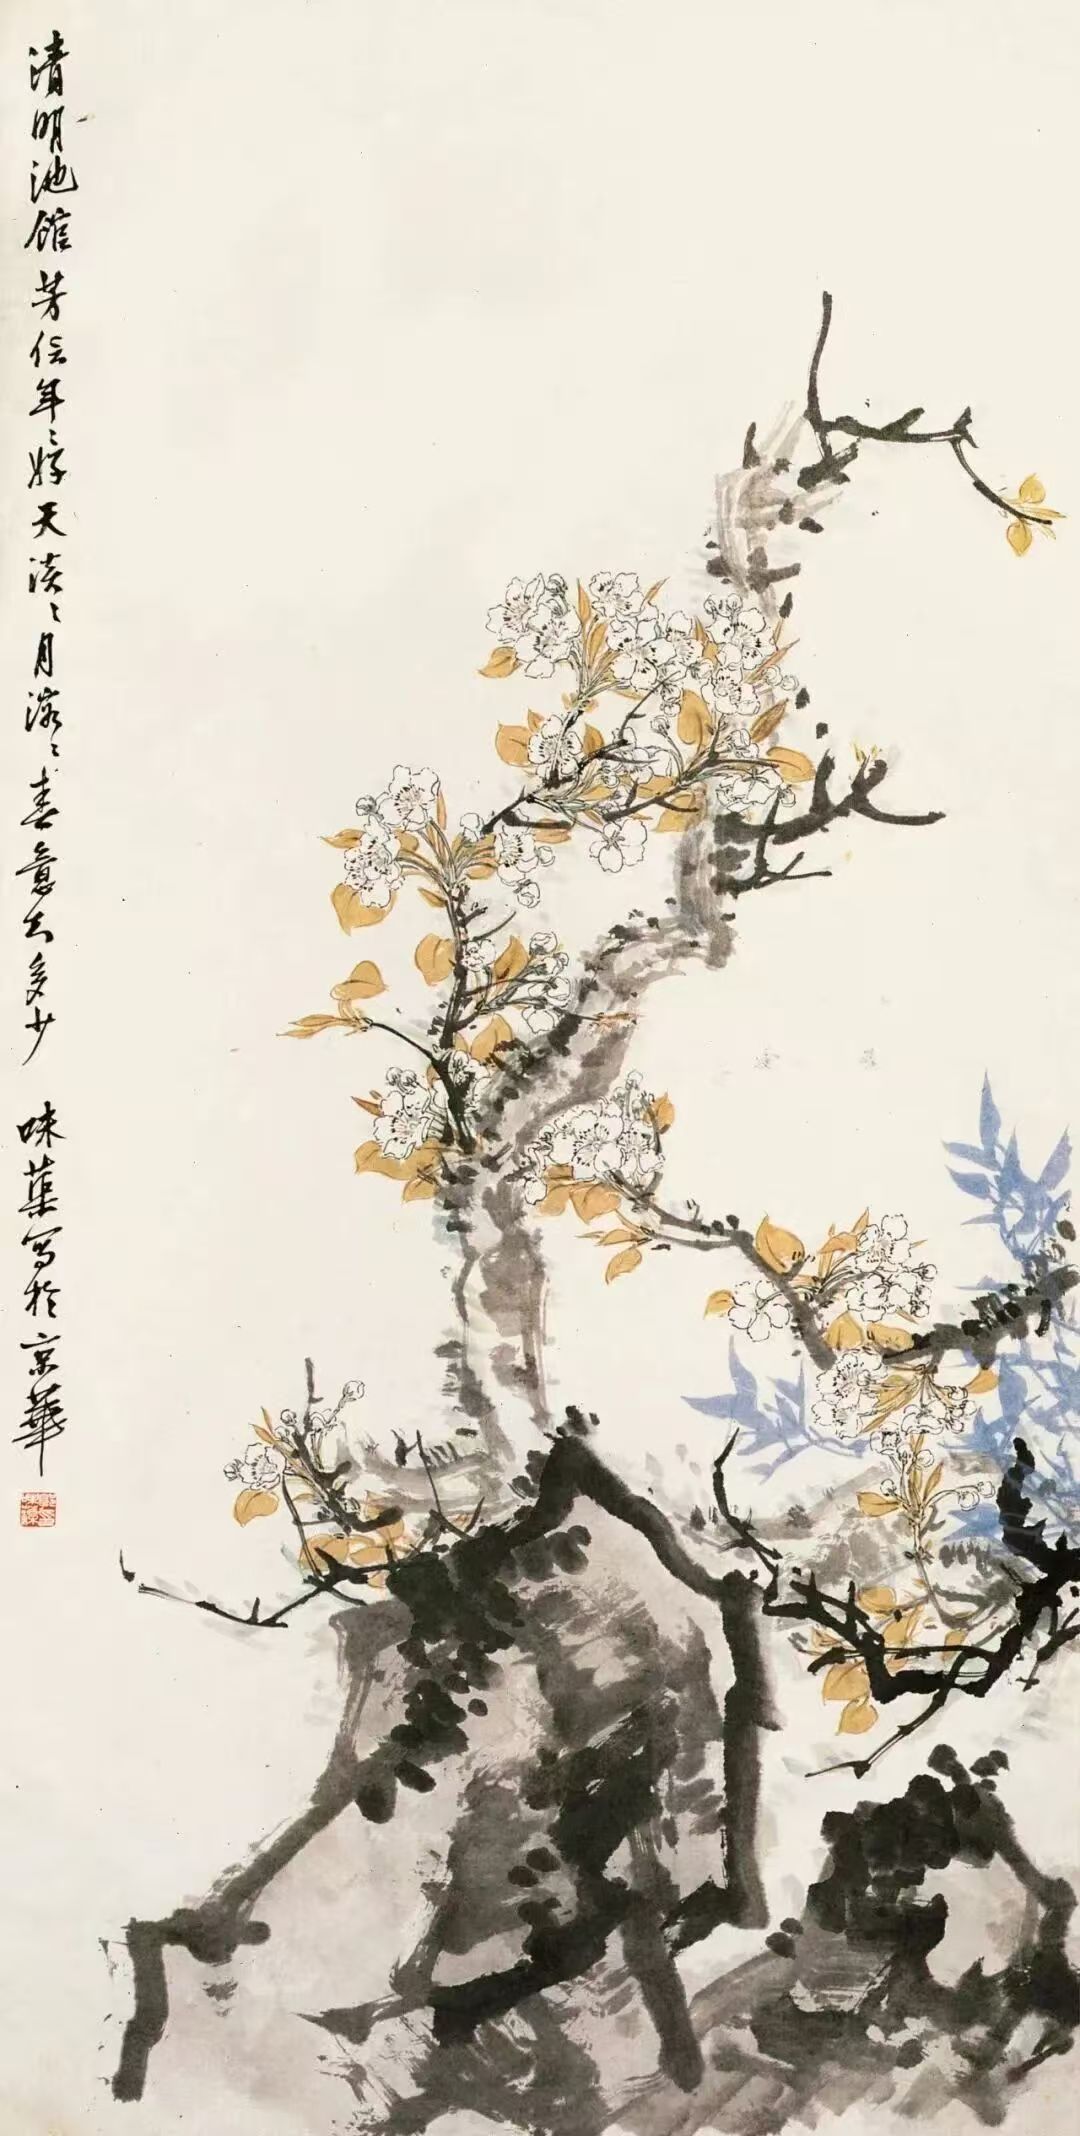 清明池館芳信年〻好天淡〻月溶〻春意知多少 味蕖寫於京華